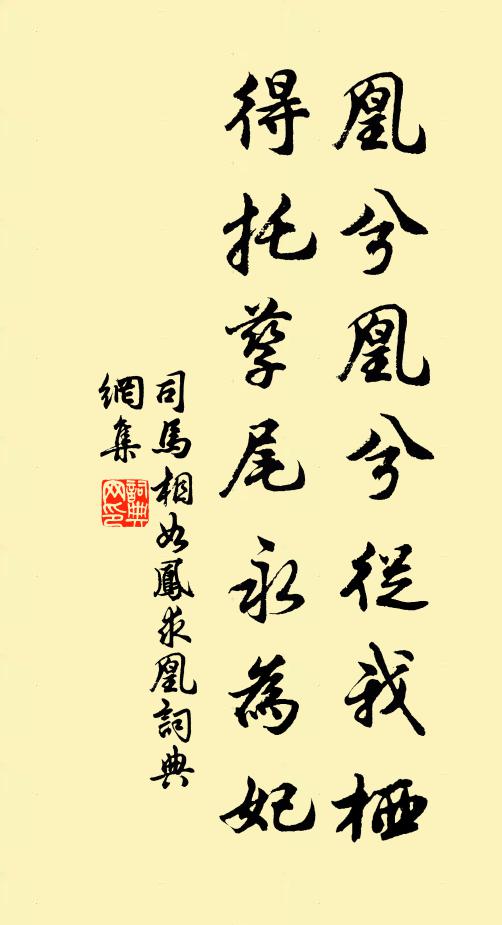 凰兮凰兮從我栖
得托孳尾永為妃
司馬相如鳳求凰詞典
網集
詞典
网印